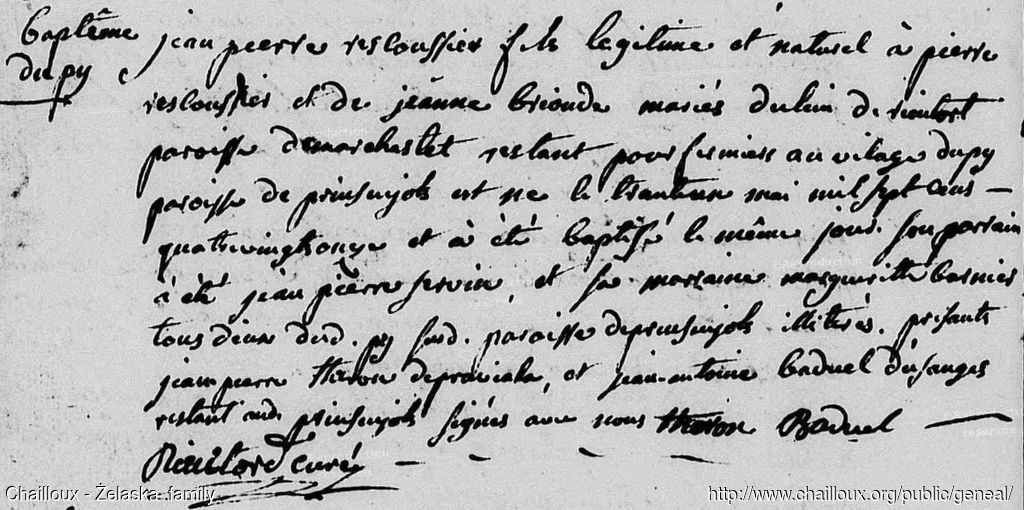 Baptême
du py
jean pierre resloussier fils legitime et naturel à pierre
resloussier et de jeanne brionde mariés du lieu de
paroisse demarchastel restant pour fermiers au vilage du py
paroisse de prinsuejols est ne le trantun mai mil sept cens
quatrevingtonze et à été baptisé le même jour. son parrain
à été jean pierre servin, et sa marraine margueritte
tous deux dud. py sud. paroisse deprinsuejols illiterés. présants
jeanpierre theron depraviala, et jean-antoine baduel
restant aud. prinsuejols signés avec nous theron Baduel
curé
Chailloux - Želaska family
http://www.chailloux.org/public/geneal/